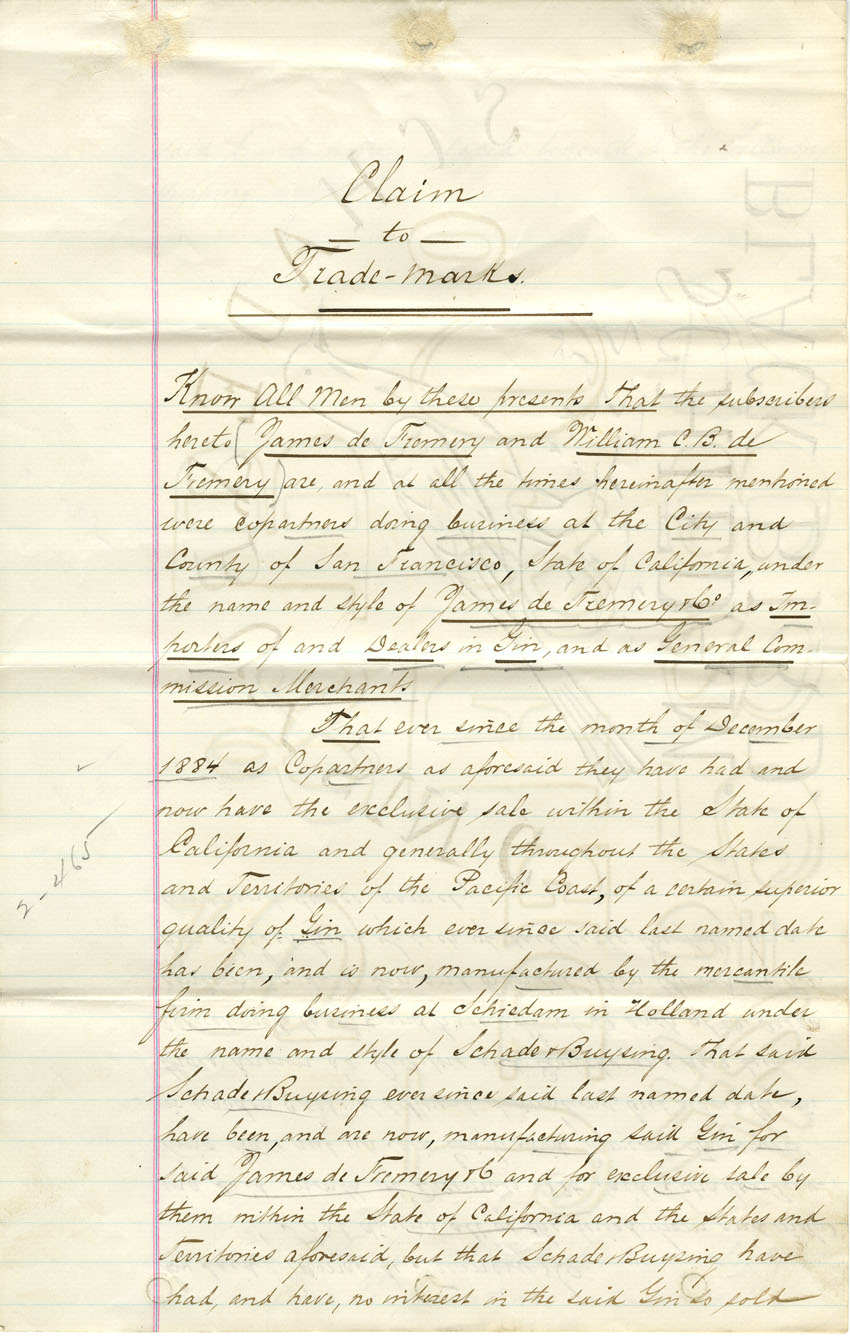 Claim
— to —
Trade-marks.
Know All Men by these presents That the subscribers
hereto (James de Fremery and William C. B. de
Fremery) are, and at all the times hereinafter mentioned
were copartners doing business at the City and
County of San Francisco, State of California, under
the name and style of James de Fremery & Co as Im-
porters of and Dealers in Gin, and as General Com-
mission Merchants
That ever since the month of December
1884 as Copartners as aforesaid they have had and
now have the exclusive sale within the State of
California and generally throughout the States
and Territories of the Pacific Coast, of a certain superior
quality of Gin which ever since said last named date
has been, and is now, manufactured by the mercantile
firm doing business at Schiedam in Holland under
the name and style of Schade & Buysing. That said
Schade & Buysing ever since said last named date,
have been, and are now, manufacturing said Gin for
said James de Fremery & Co and for exclusive sale by
them within the State of California and the States and
Territories aforesaid, but that Schade & Buysing have
had, and have, no interest in the said Gin so sold
2-465